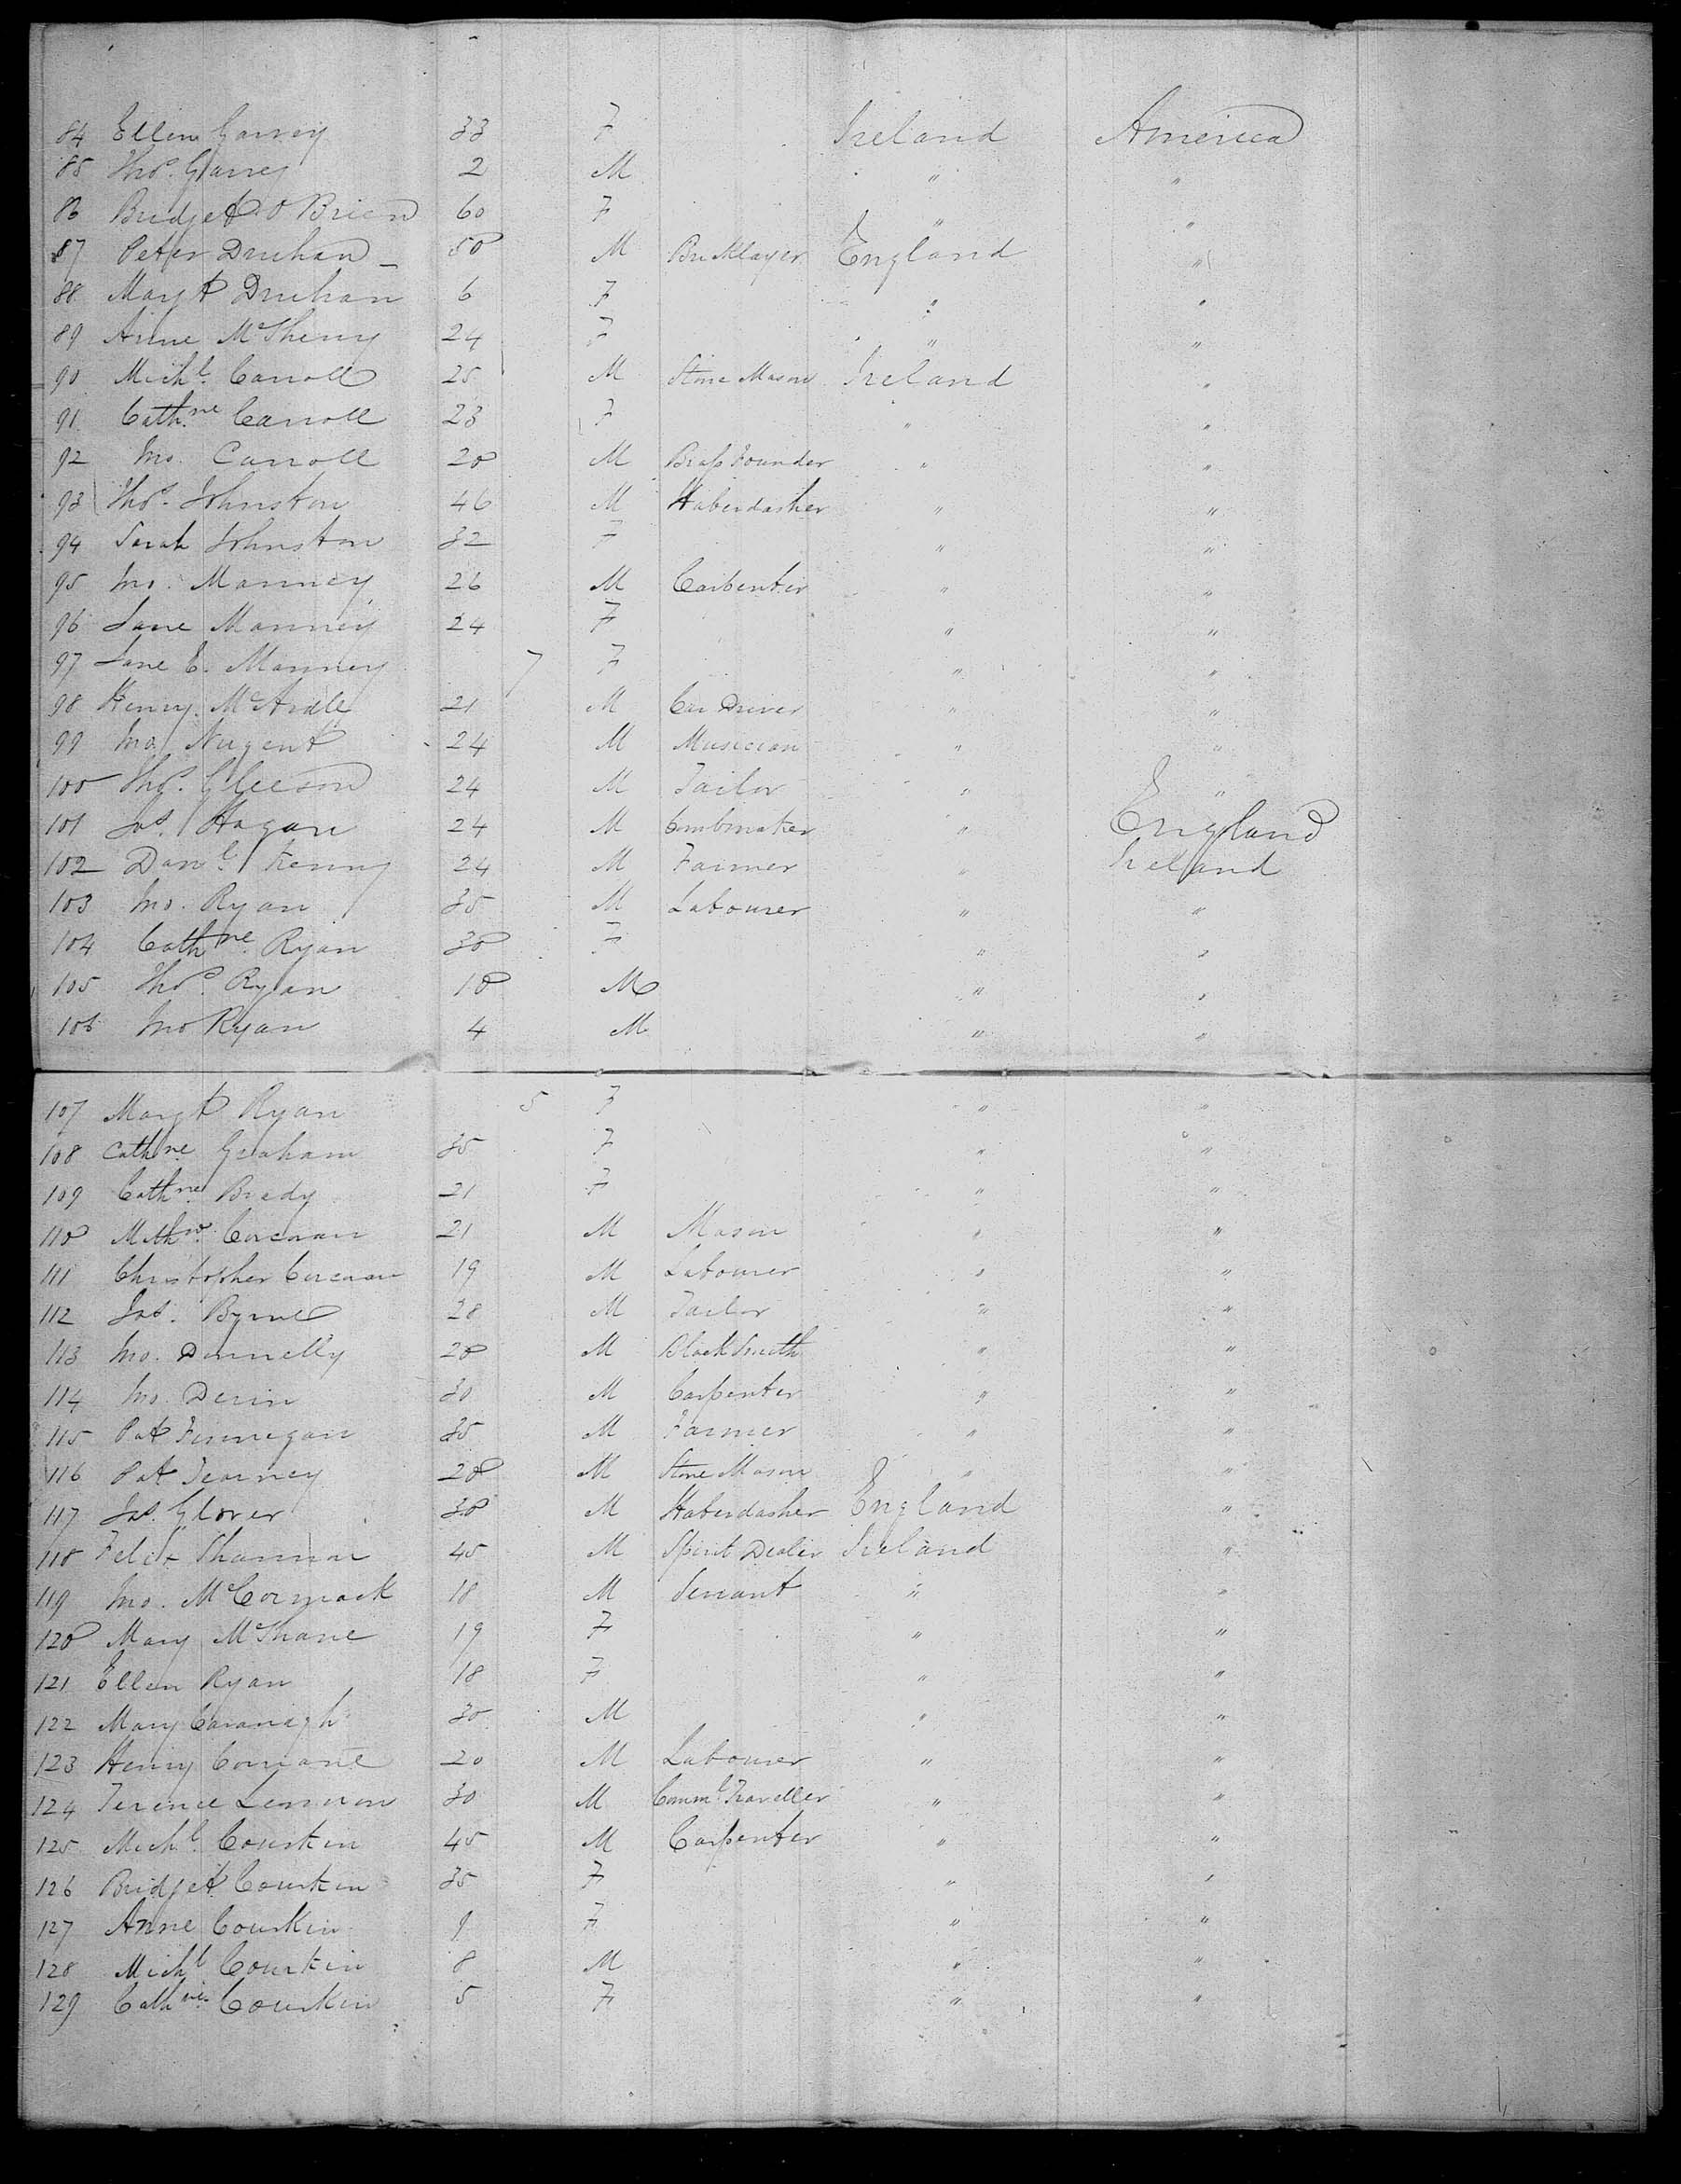 84 Ellen Garvey 33 F Ireland America
85 Thos. Garvey 2 M " "
86 Bridget O Brien 60 F " "
87 Peter Druhan 50 M Bricklayer England "
88 Margt Druhan 6 F " "
89 Anne McSherry 24 F " "
90 Michl. Carroll 25 M Stone Mason Ireland "
91 Cathne Carroll 23 F " "
92 Jno. Carroll 20 M Brass Founder " "
93 Thos. Johnston 46 M Haberdasher " "
94 Sarah Johnston 32 F " "
95 Jno. Manney 26 M Carpenter " "
96 Jane Manney 24 F " "
97 Jane E. Manney 7 F " "
98 Henry McArdle 21 M Car Driver " "
99 Jno. Nugent 24 M Musician " "
100 Thos. Gleeson 24 M Tailor " "
101 Jas. Hagan 24 M Combmaker " England
102 Danl. Kenny 24 M Farmer " Ireland
103 Jno. Ryan 35 M Labourer " "
104 Cathne Ryan 30 F " "
105 Thos. Ryan 10 M " "
106 Jno Ryan 4 M " "
107 Margt Ryan 5 F " "
108 Cathne Graham 35 F " "
109 Cathne Brady 21 F " "
110 Mathw. Corcoran 21 M Mason " "
111 Christopher Corcoran 19 M Labourer " "
112 Jas. Byrne 28 M Tailor " "
113 Jno. Donnelly 20 M Black Smith " "
114 Jno. Devin 30 M Carpenter " "
115 Pat Finnegan 35 M Farmer " "
116 Pat Tearney 20 M Stone Mason " "
117 Jas. Glover 30 M Haberdasher England "
118 Felix Shannon 45 M Spirit Dealer Ireland "
119 Jno. McCormack 18 M Servant " "
120 Mary McShane 19 F " "
121 Ellen Ryan 18 F " "
122 Mary Cavanagh 30 M " "
123 Henry 20 M Labourer " "
124 Terence Lennon 30 M Comml Traveller " "
125 Michl. Courkin 45 M Carpenter " "
126 Bridget Courkin 35 F " "
127 Anne Courkin 9 F " "
128 Michl Courkin 8 M " "
129 Cathne Courkin 5 F " "